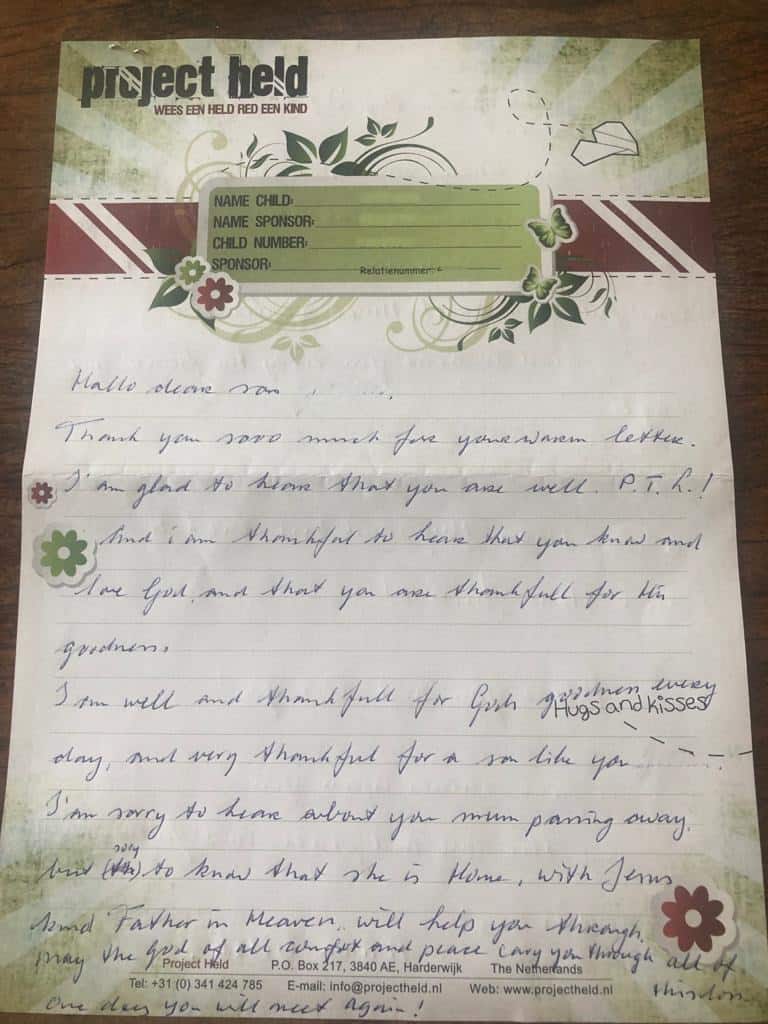 project held
WEES EEN HELD RED EEN KIND
NAME CHILD:
NAME SPONSOR:
CHILD NUMBER:
SPONSOR:
Relatienummer:
Hallo dear son
Thank you sooo much for your warm letter.
I'am glad to hear that you are well. P.T.L.!
And i am thankful to hear that you know and
love God, and that you are thankfull for His
goodness.
I am well and thankfull for Gods goodness every
Hugs and kisses
day, and very thankful for a son like you
I'am sorry to hear about you mum passing away,
but to know that she is Home, with Jesus
kind Father in Heaven, will help you through.
may the God of all comfort and peace cary you through all of
this
one day you will meet again!
Project Held P.O. Box 217, 3840 AE, Harderwijk The Netherlands
Tel: +31 (0) 341 424 785 E-mail: info@projectheld.nl Web: www.projectheld.nl